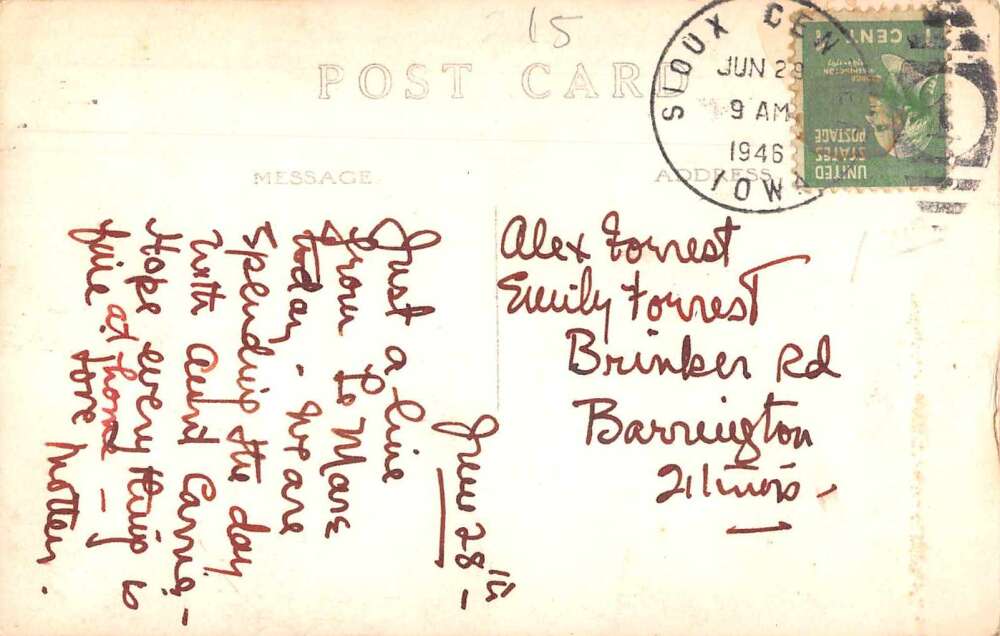 15
POST CARD
SIOUX CEN
JUN 29
9 AM
1946
IOWA
1 CENT 1
GEORGE
WASHINGTON
UNITED
STATES
POSTAGE
MESSAGE
ADDRESS
June 28th –
Just a line
from Le Mars
today. – We are
spending the day
with Aunt Carrie, –
Hope everything is
fine at home –
Love Mother.
Alex Forrest
Emily Forrest
Brinker Rd
Barrington
Illinois.